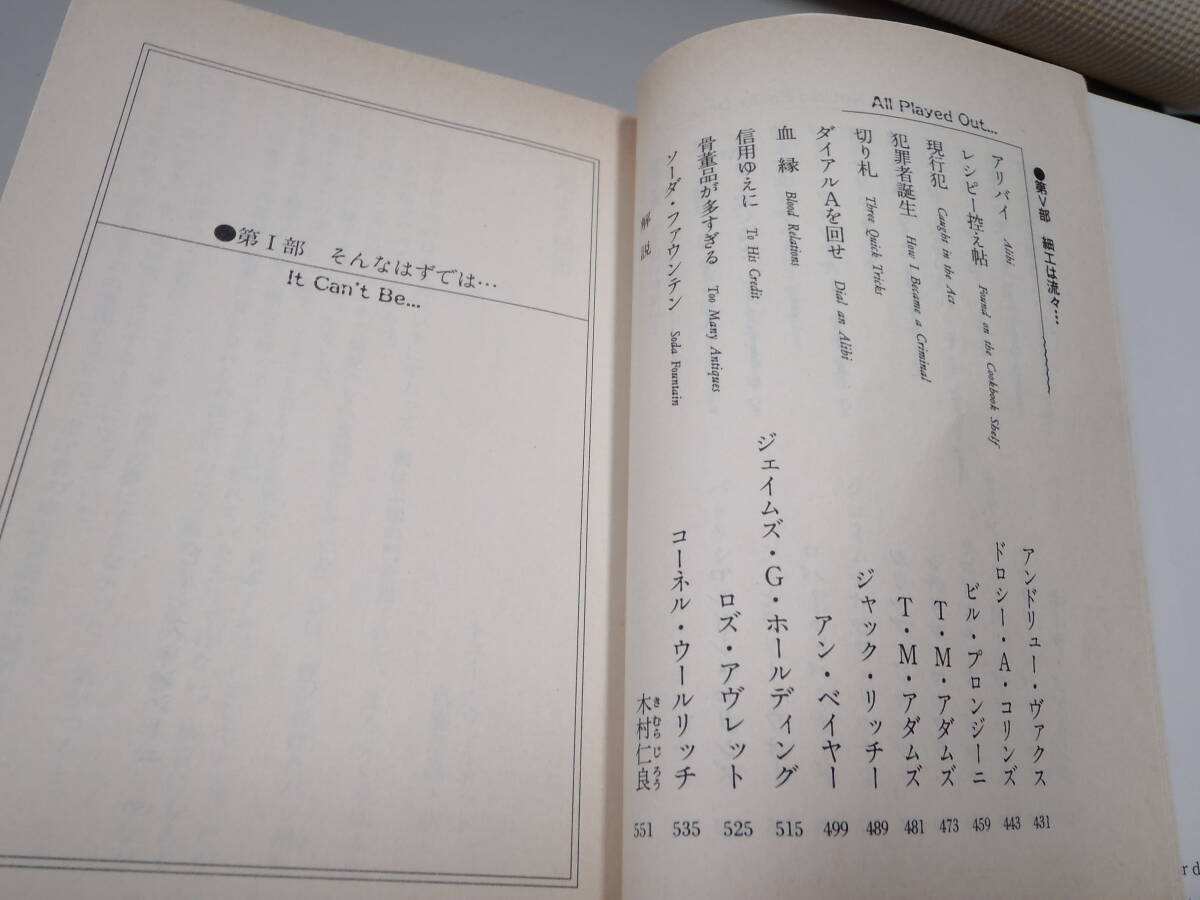 ●第Ⅴ部 細工は流々…
All Played Out...
アリバイ Alibi アンドリュー・ヴァクス 431
レシピー控え帖 Found on the Cookbook Shelf ドロシー・A・コリンズ 443
現行犯 Caught in the Act ビル・プロンジーニ 459
犯罪者誕生 How I Became a Criminal T・M・アダムズ 473
切り札 Three Quick Tricks T・M・アダムズ 481
ダイアルAを回せ Dial an Alibi ジャック・リッチー 489
血縁 Blood Relations アン・ベイヤー 499
信用ゆえに To His Credit ジェイムズ・G・ホールディング 515
骨董品が多すぎる Too Many Antiques ロズ・アヴレット 525
ソーダ・ファウンテン Soda Fountain コーネル・ウールリッチ 535
解説 木村仁良 きむらじろう 551
●第Ⅰ部 そんなはずでは…
It Can't Be...